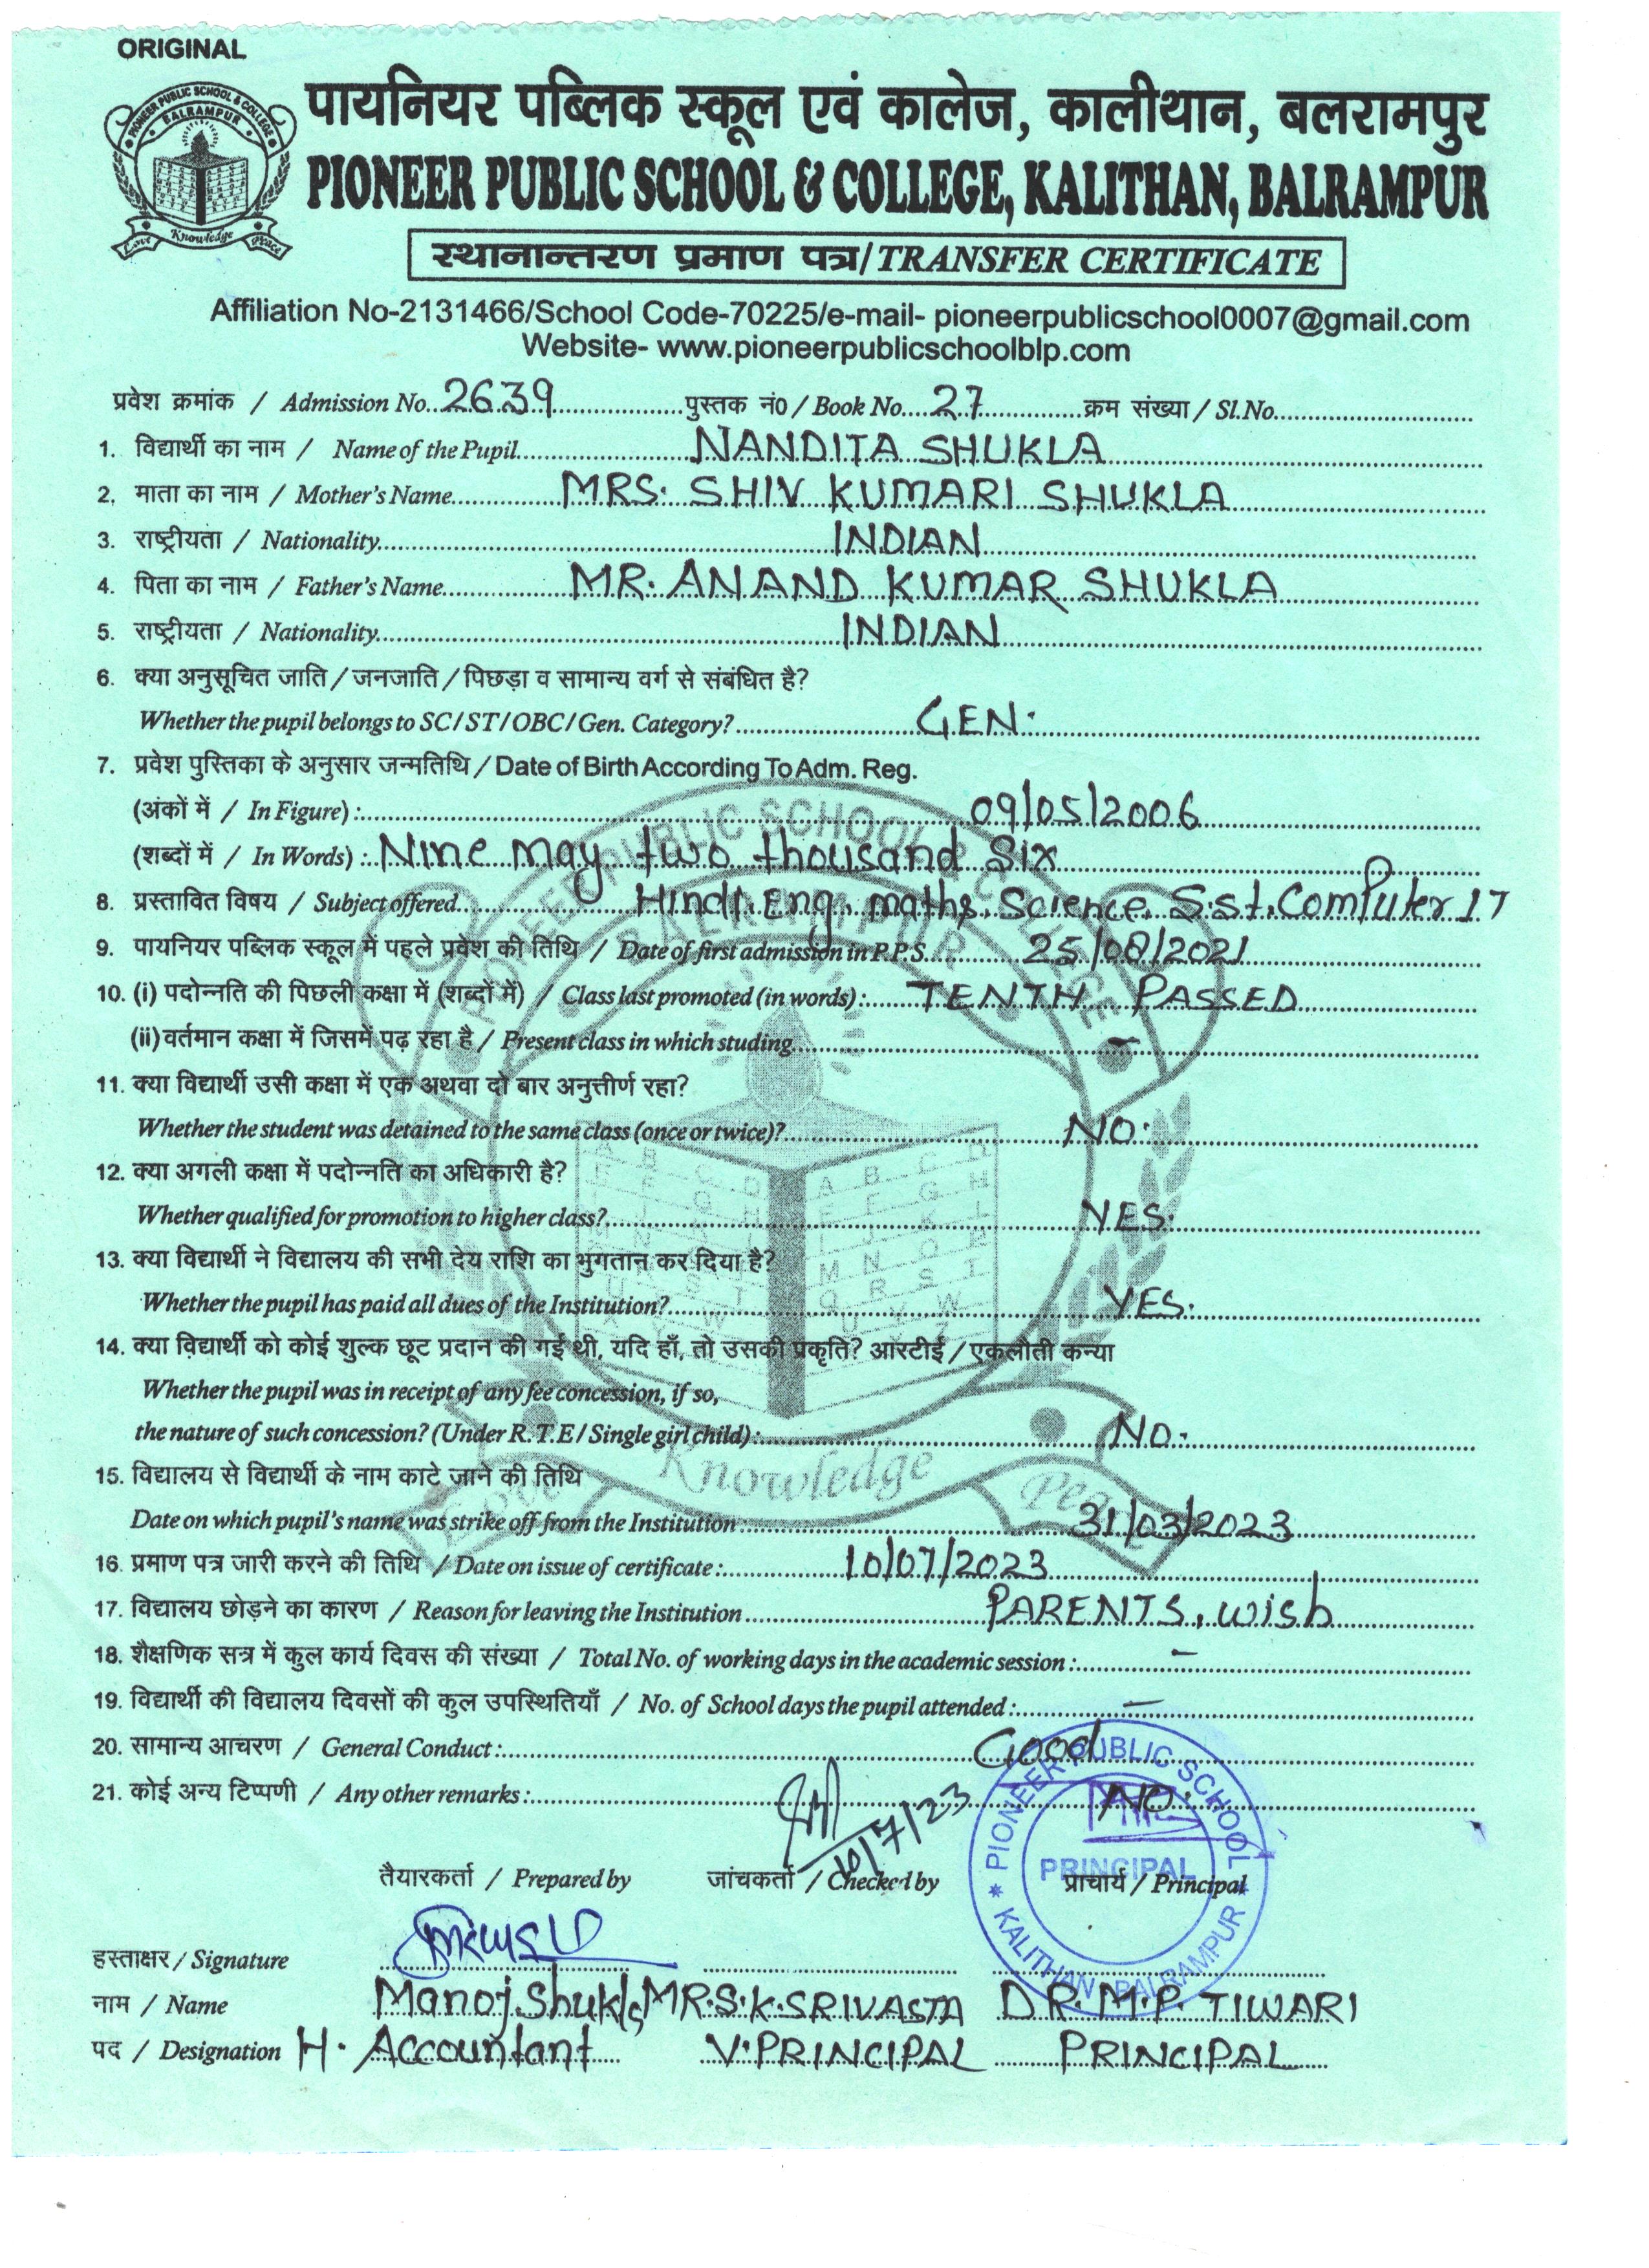 ORIGINAL
PIONEER PUBLIC SCHOOL & COLLEGE
BALRAMPUR
Love Knowledge Peace
पायनियर पब्लिक स्कूल एवं कालेज, कालीथान, बलरामपुर
PIONEER PUBLIC SCHOOL & COLLEGE, KALITHAN, BALRAMPUR
स्थानान्तरण प्रमाण पत्र/TRANSFER CERTIFICATE
Affiliation No-2131466/School Code-70225/e-mail- pioneerpublicschool0007@gmail.com
Website- www.pioneerpublicschoolblp.com
प्रवेश क्रमांक / Admission No. 2639 पुस्तक नं0 / Book No. 27 क्रम संख्या / Sl.No.
1. विद्यार्थी का नाम / Name of the Pupil NANDITA SHUKLA
2. माता का नाम / Mother's Name MRS. SHIV KUMARI SHUKLA
3. राष्ट्रीयता / Nationality INDIAN
4. पिता का नाम / Father's Name MR. ANAND KUMAR SHUKLA
5. राष्ट्रीयता / Nationality INDIAN
6. क्या अनुसूचित जाति / जनजाति / पिछड़ा व सामान्य वर्ग से संबंधित है?
Whether the pupil belongs to SC / ST / OBC / Gen. Category? GEN.
7. प्रवेश पुस्तिका के अनुसार जन्मतिथि / Date of Birth According To Adm. Reg.
(अंकों में / In Figure) : 09/05/2006
(शब्दों में / In Words) : Nine may two thousand Six
8. प्रस्तावित विषय / Subject offered Hindi, Eng, maths, Science, S.st, Computer IT
9. पायनियर पब्लिक स्कूल में पहले प्रवेश की तिथि / Date of first admission in P.P.S. 25/08/2021
10. (i) पदोन्नति की पिछली कक्षा में (शब्दों में) / Class last promoted (in words) : TENTH PASSED
(ii) वर्तमान कक्षा में जिसमें पढ़ रहा है / Present class in which studing –
11. क्या विद्यार्थी उसी कक्षा में एक अथवा दो बार अनुत्तीर्ण रहा?
Whether the student was detained to the same class (once or twice)? NO.
12. क्या अगली कक्षा में पदोन्नति का अधिकारी है?
Whether qualified for promotion to higher class? YES.
13. क्या विद्यार्थी ने विद्यालय की सभी देय राशि का भुगतान कर दिया है?
Whether the pupil has paid all dues of the Institution? YES.
14. क्या विद्यार्थी को कोई शुल्क छूट प्रदान की गई थी, यदि हाँ, तो उसकी प्रकृति? आरटीई / एकलौती कन्या
Whether the pupil was in receipt of any fee concession, if so,
the nature of such concession? (Under R.T.E / Single girl child) : NO.
15. विद्यालय से विद्यार्थी के नाम काटे जाने की तिथि
Date on which pupil's name was strike off from the Institution 31/03/2023
16. प्रमाण पत्र जारी करने की तिथि / Date on issue of certificate : 10/07/2023
17. विद्यालय छोड़ने का कारण / Reason for leaving the Institution PARENTS, wish
18. शैक्षणिक सत्र में कुल कार्य दिवस की संख्या / Total No. of working days in the academic session : –
19. विद्यार्थी की विद्यालय दिवसों की कुल उपस्थितियाँ / No. of School days the pupil attended : –
20. सामान्य आचरण / General Conduct : Good
21. कोई अन्य टिप्पणी / Any other remarks : NO.
10/7/23
PIONEER PUBLIC SCHOOL
PRINCIPAL
KALITHAN BALRAMPUR
तैयारकर्ता / Prepared by जांचकर्ता / Checked by प्राचार्य / Principal
हस्ताक्षर / Signature
नाम / Name Manoj Shukla MR.S.K.SRIVASTA DR. M.P. TIWARI
पद / Designation H. Accountant V.PRINCIPAL PRINCIPAL